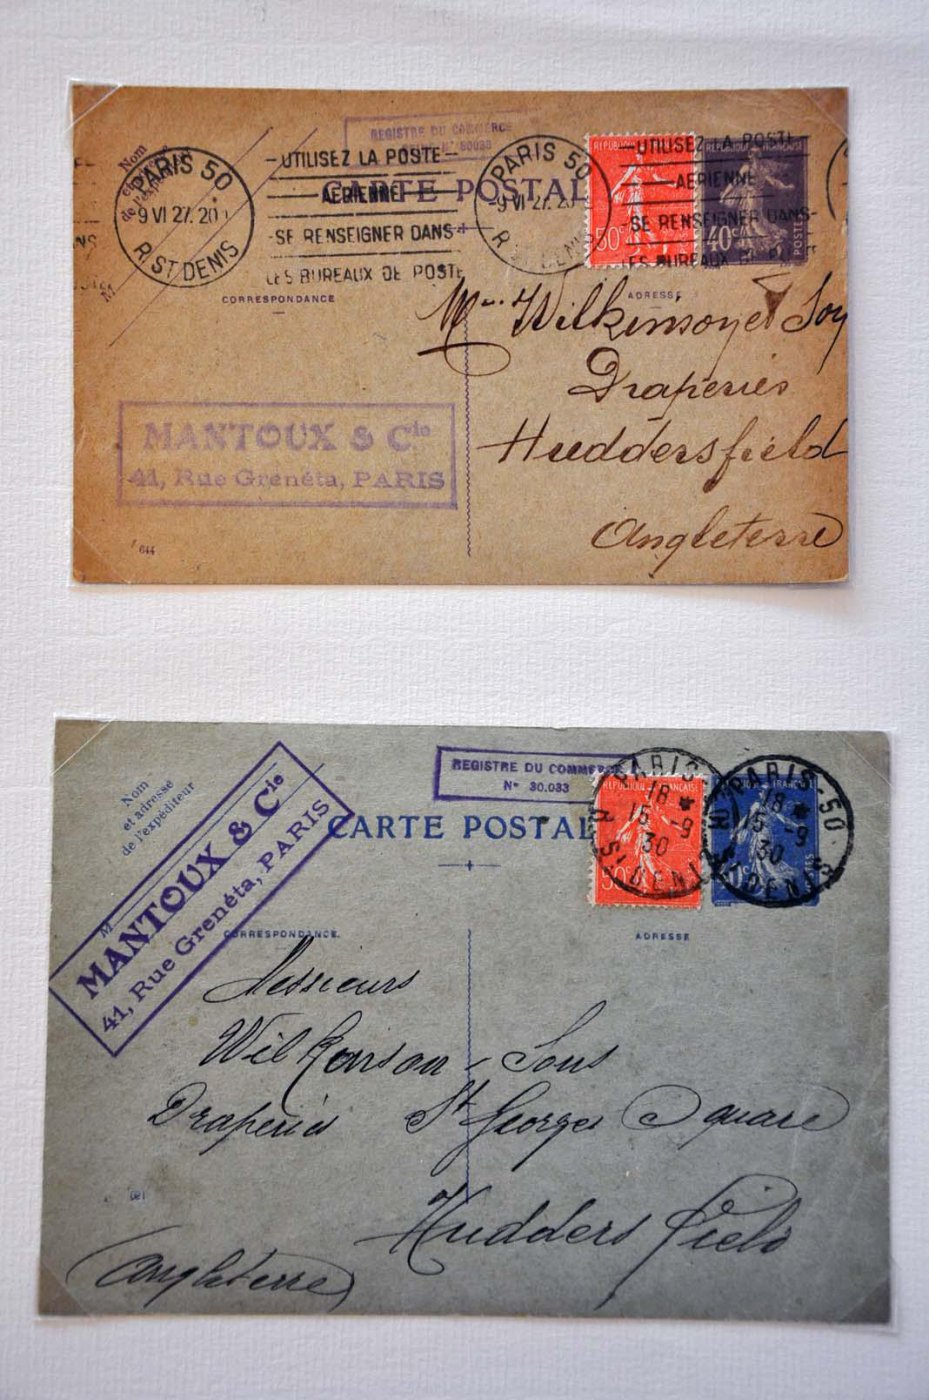 Nom
et adresse
de l'expéditeur
REGISTRE DU COMMERCE
PARIS 50
9 VI 27. 20
R. ST DENIS
-UTILISEZ LA POSTE-
AERIENNE
-SE RENSEIGNER DANS-
LES BUREAUX DE POSTE
CARTE POSTAL
PARIS 50
9 VI 27. 20
RÉPUBLIQUE FRANÇAISE
50c
-UTILISEZ LA POSTE-
AERIENNE
SE RENSEIGNER DANS-
LES BUREAUX DE POSTE
RÉPUBLIQUE FRANÇAISE
40c
POSTES
M
CORRESPONDANCE
ADRESSE
Wilkinson et Soy
Draperies
Huddersfield
Angleterre
MANTOUX & Cie
41, Rue Grenéta, PARIS
644
Nom
et adresse
de l'expéditeur
REGISTRE DU COMMERCE
N° 30.033
MANTOUX & Cie
41, Rue Grenéta, PARIS
M
CARTE POSTAL
RÉPUBLIQUE FRANÇAISE
50c
PARIS-50
18 *
15 -9
30
R. ST DENIS
PARIS-50
18 *
15 -9
30
R. ST DENIS
CORRESPONDANCE
ADRESSE
Messieurs
Wilkinson Sons
Draperies St Georges Square
Huddersfield
Angleterre